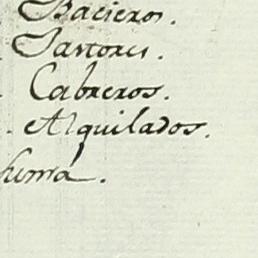 Bacieros.
Sastores.
Cabreros.
Alquilados.
suma.